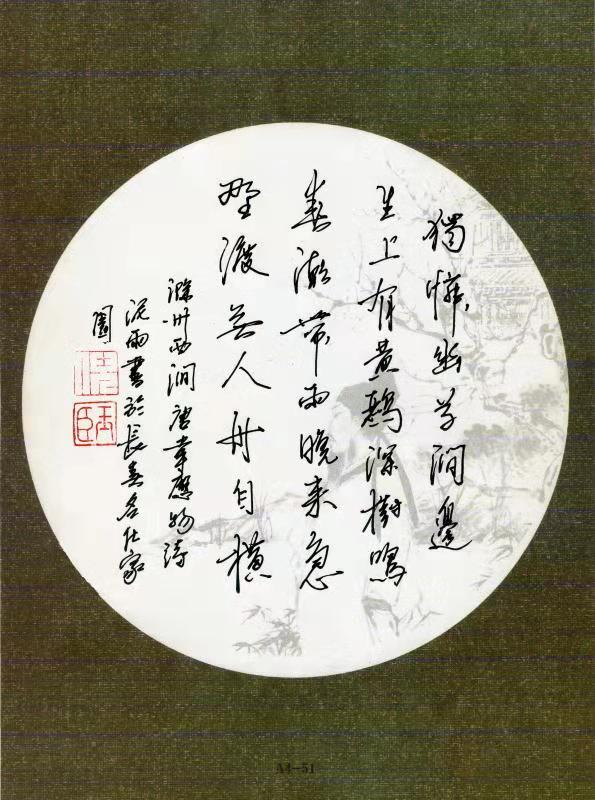 獨憐幽草澗邊
生上有黃鸝深樹鳴
春潮帶雨晚來急
野渡無人舟自橫
滁州西澗唐韋應物詩
泥雨書於長春名仕家
園
A4-51